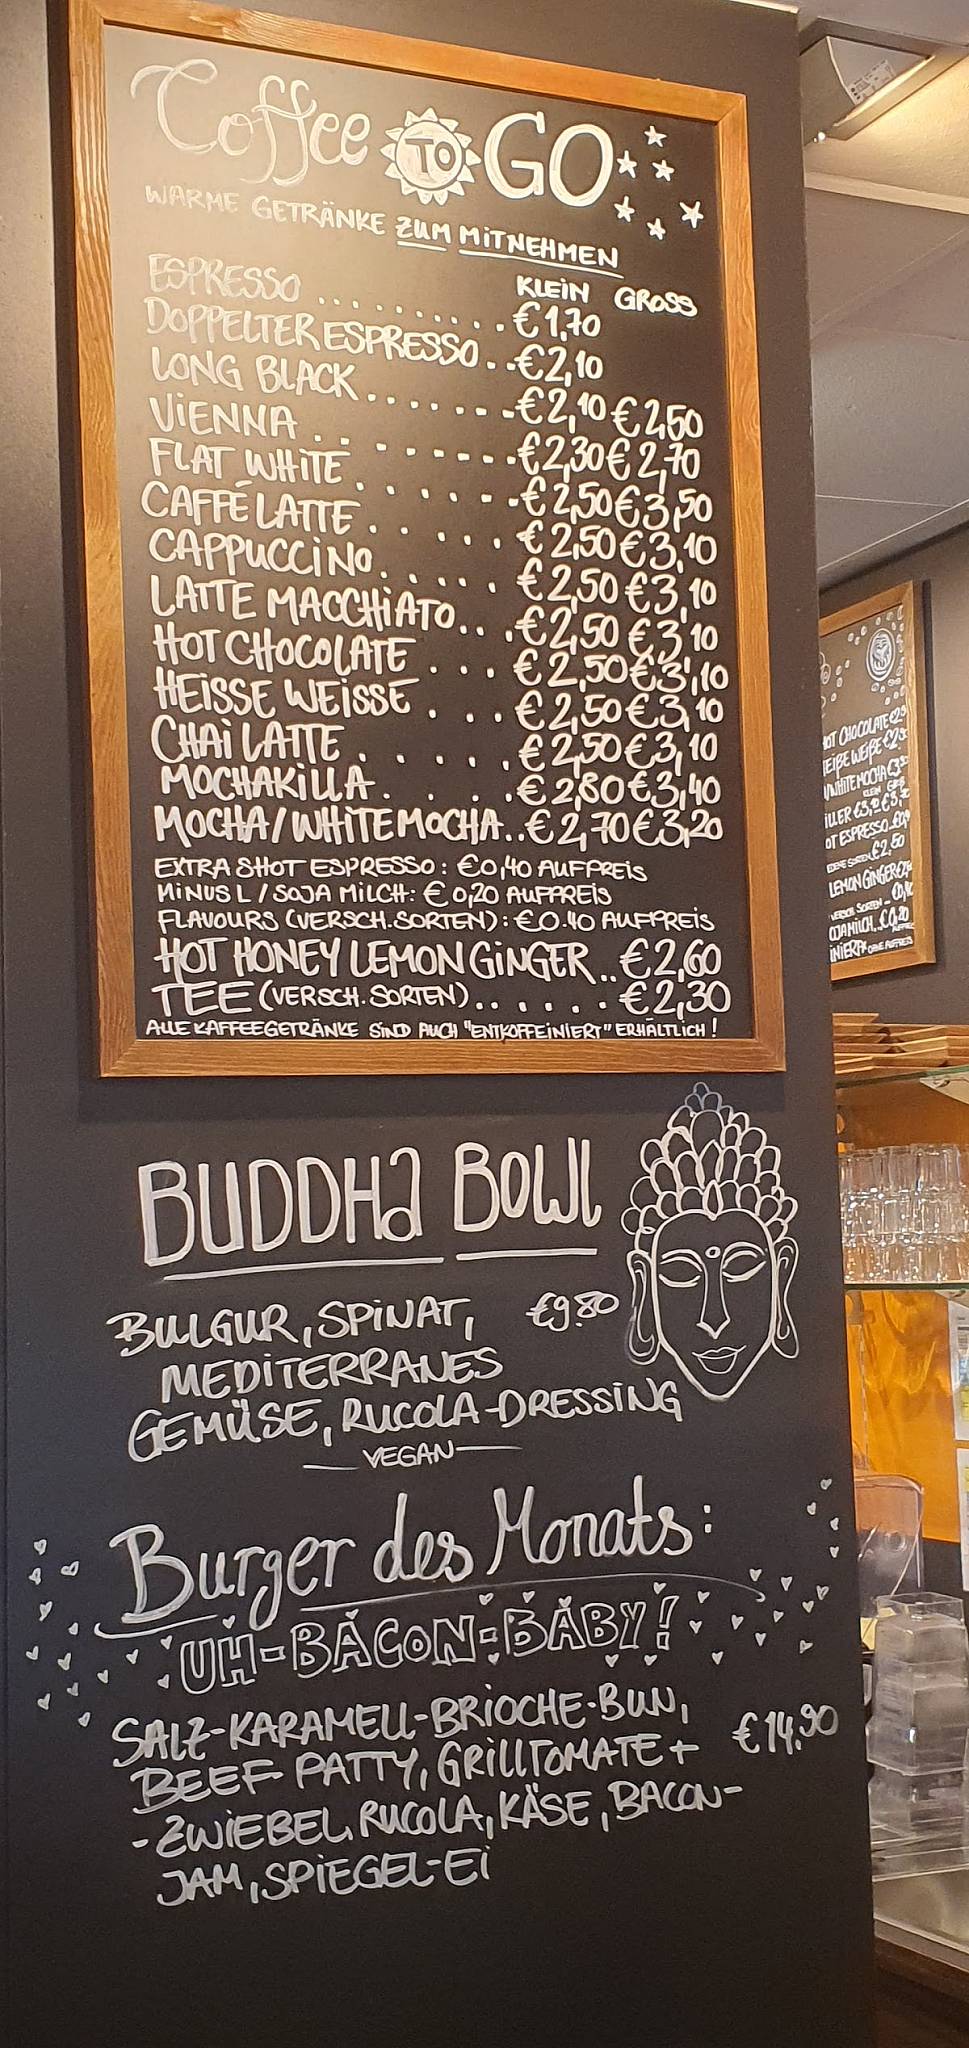 Coffee TO GO
WARME GETRÄNKE ZUM MITNEHMEN
KLEIN GROSS
ESPRESSO .......... €1,70
DOPPELTER ESPRESSO .. €2,10
LONG BLACK ....... €2,10 €2,50
VIENNA .. ...... €2,30 €2,70
FLAT WHITE ...... €2,50 €3,50
CAFFÉ LATTE .... €2,50 €3,10
CAPPUCCINO ..... €2,50 €3,10
LATTE MACCHIATO ... €2,50 €3,10
HOT CHOCOLATE ... €2,50 €3,10
HEISSE WEISSE ... €2,50 €3,10
CHAI LATTE ...... €2,50 €3,10
MOCHAKILLA ..... €2,80 €3,40
MOCHA/WHITE MOCHA .. €2,70 €3,20
EXTRA SHOT ESPRESSO: €0,40 AUFPREIS
MINUS L / SOJA MILCH: €0,20 AUFPREIS
FLAVOURS (VERSCH. SORTEN): €0.40 AUFPREIS
HOT HONEY LEMON GINGER .. €2,60
TEE (VERSCH. SORTEN) ...... €2,30
ALLE KAFFEEGETRÄNKE SIND AUCH "ENTKOFFEINIERT" ERHÄLTLICH!
BUDDHA BOWL
BULGUR, SPINAT, €9.80
MEDITERRANES
GEMÜSE, RUCOLA-DRESSING
VEGAN
Burger des Monats:
UH-BACON-BABY!
SALZ-KARAMELL-BRIOCHE-BUN,
BEEF PATTY, GRILLTOMATE + €14.90
-ZWIEBEL, RUCOLA, KÄSE, BACON-
JAM, SPIEGEL-EI
HOT CHOCOLATE
WEIßE
WHITE MOCHA
ESPRESSO
LEMON GINGER